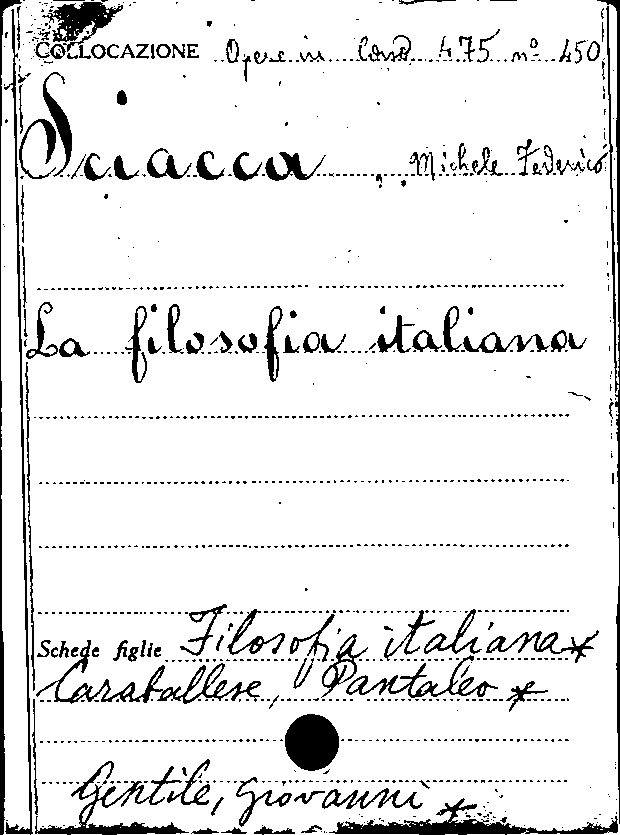 COLLOCAZIONE Opere in Cons 475 nº 450
Sciacca, Michele Federico
La filosofia italiana
Schede figlie Filosofia italiana *
Caraballese, Pantaleo *
Gentile, Giovanni *